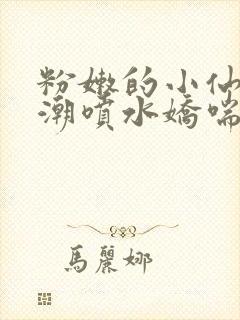 粉嫩的小仙
潮噴水嬌喘
馬麗娜